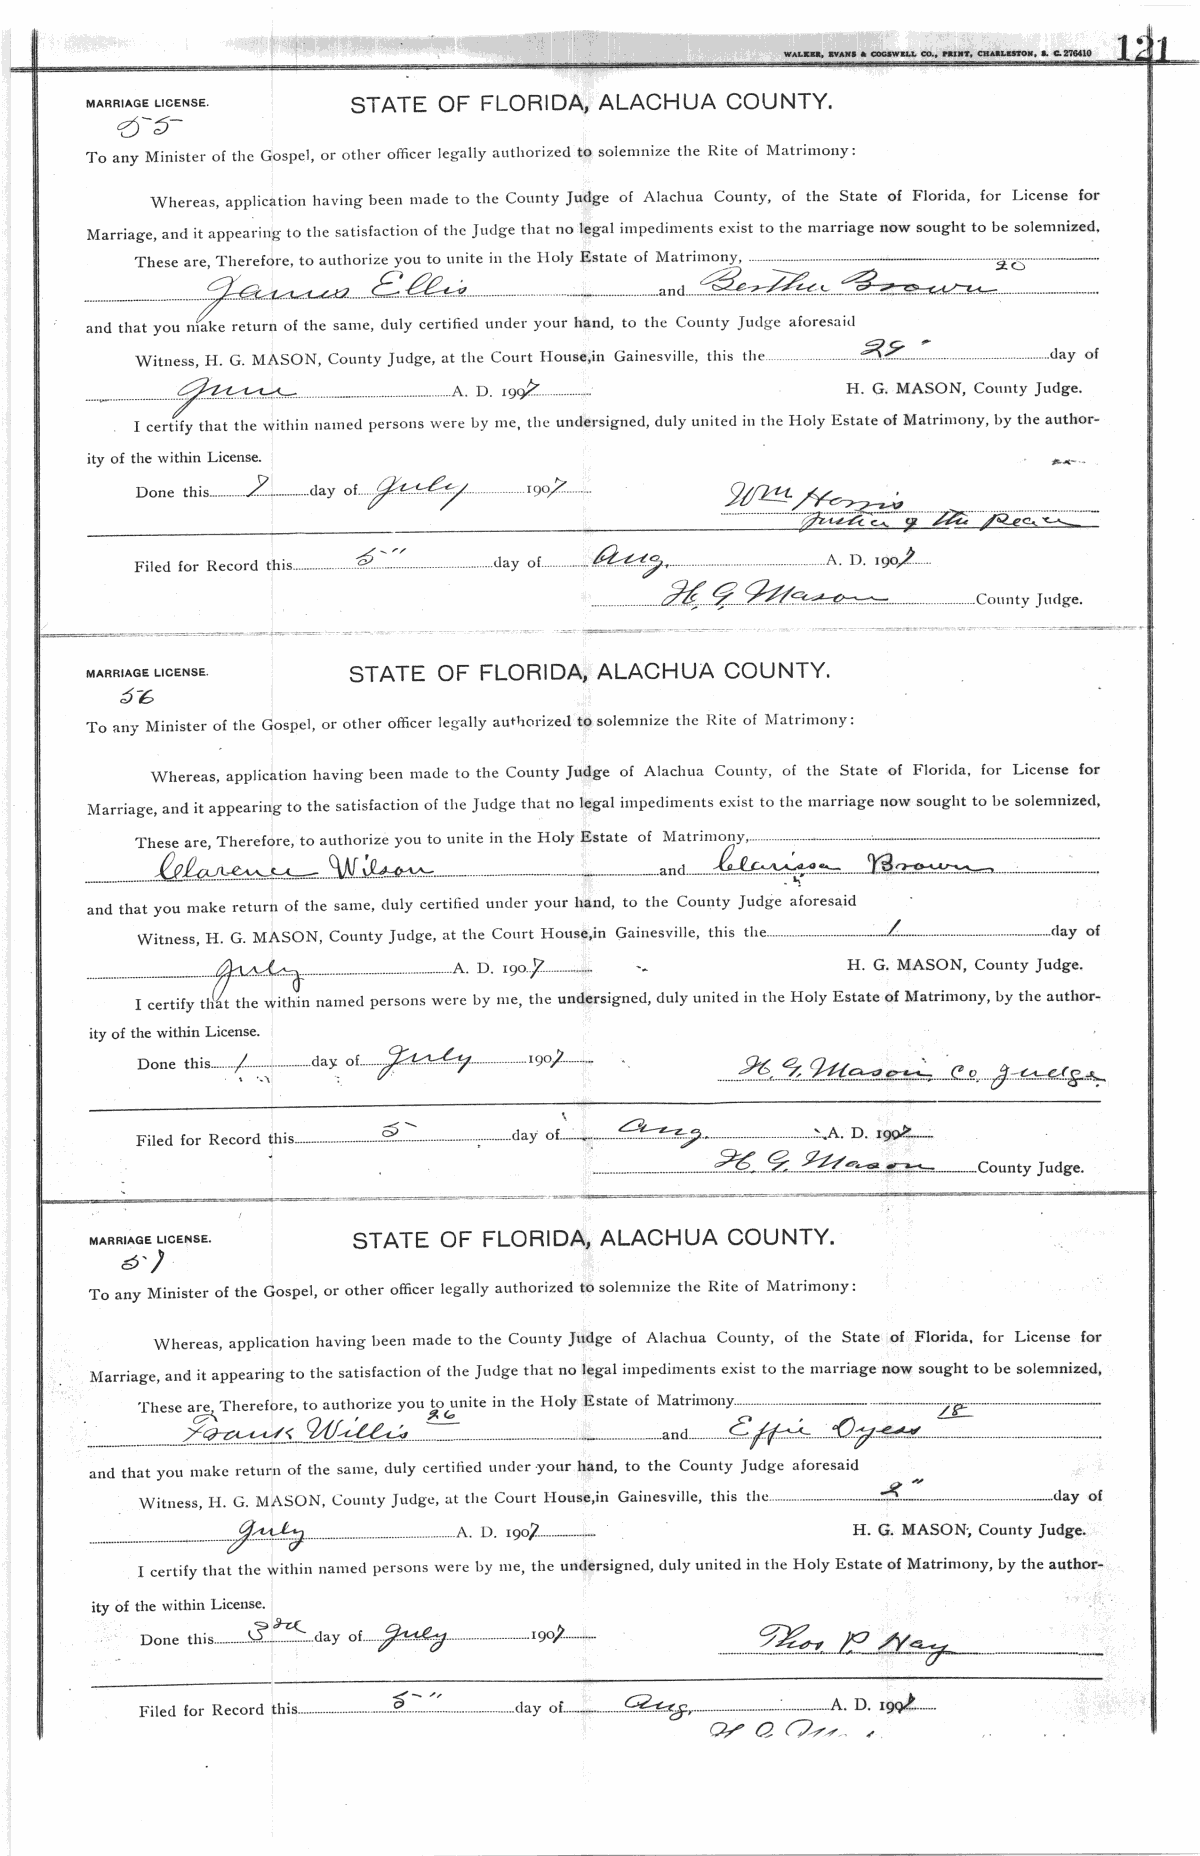 WALKER, EVANS & COGSWELL CO., PRINT, CHARLESTON, S. C. 276410 121
MARRIAGE LICENSE. STATE OF FLORIDA, ALACHUA COUNTY.
55
To any Minister of the Gospel, or other officer legally authorized to solemnize the Rite of Matrimony:
Whereas, application having been made to the County Judge of Alachua County, of the State of Florida, for License for
Marriage, and it appearing to the satisfaction of the Judge that no legal impediments exist to the marriage now sought to be solemnized,
These are, Therefore, to authorize you to unite in the Holy Estate of Matrimony,
20
James Ellis and Bertha Brown
and that you make return of the same, duly certified under your hand, to the County Judge aforesaid
Witness, H. G. MASON, County Judge, at the Court House, in Gainesville, this the 29" day of
June A. D. 1907 H. G. MASON, County Judge.
I certify that the within named persons were by me, the undersigned, duly united in the Holy Estate of Matrimony, by the author-
ity of the within License.
Done this 7 day of July 1907 Wm Harris
Justice of the Peace
Filed for Record this 5" day of Aug. A. D. 1907
H. G. Mason County Judge.
MARRIAGE LICENSE. STATE OF FLORIDA, ALACHUA COUNTY.
56
To any Minister of the Gospel, or other officer legally authorized to solemnize the Rite of Matrimony:
Whereas, application having been made to the County Judge of Alachua County, of the State of Florida, for License for
Marriage, and it appearing to the satisfaction of the Judge that no legal impediments exist to the marriage now sought to be solemnized,
These are, Therefore, to authorize you to unite in the Holy Estate of Matrimony,
Clarence Wilson and Clarissa Brown
and that you make return of the same, duly certified under your hand, to the County Judge aforesaid
Witness, H. G. MASON, County Judge, at the Court House, in Gainesville, this the 1 day of
July A. D. 1907 H. G. MASON, County Judge.
I certify that the within named persons were by me, the undersigned, duly united in the Holy Estate of Matrimony, by the author-
ity of the within License.
Done this 1 day of July 1907 H. G. Mason Co. Judge
Filed for Record this 5 day of Aug. A. D. 1907
H. G. Mason County Judge.
MARRIAGE LICENSE. STATE OF FLORIDA, ALACHUA COUNTY.
57
To any Minister of the Gospel, or other officer legally authorized to solemnize the Rite of Matrimony:
Whereas, application having been made to the County Judge of Alachua County, of the State of Florida, for License for
Marriage, and it appearing to the satisfaction of the Judge that no legal impediments exist to the marriage now sought to be solemnized,
These are, Therefore, to authorize you to unite in the Holy Estate of Matrimony
26 18
Frank Willis and Effie Dyess
and that you make return of the same, duly certified under your hand, to the County Judge aforesaid
Witness, H. G. MASON, County Judge, at the Court House, in Gainesville, this the 2" day of
July A. D. 1907 H. G. MASON, County Judge.
I certify that the within named persons were by me, the undersigned, duly united in the Holy Estate of Matrimony, by the author-
ity of the within License.
Done this 3rd day of July 1907 Thos. P. Hay
Filed for Record this 5" day of Aug. A. D. 1907